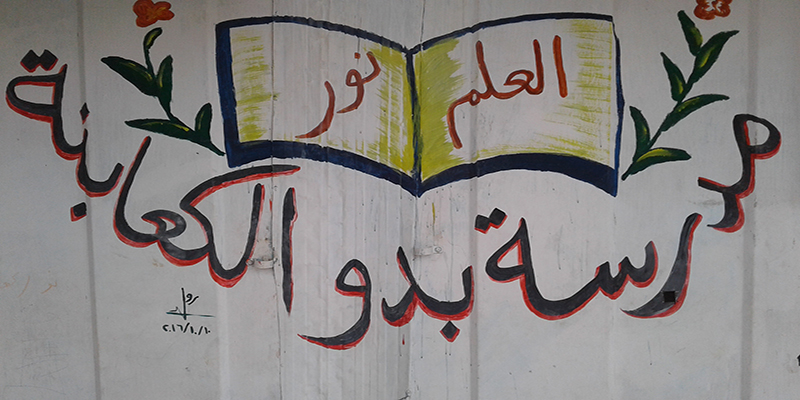 العلم نور
مدرسة بدو الكعابنة
٢٠١٦/١٠/١٠